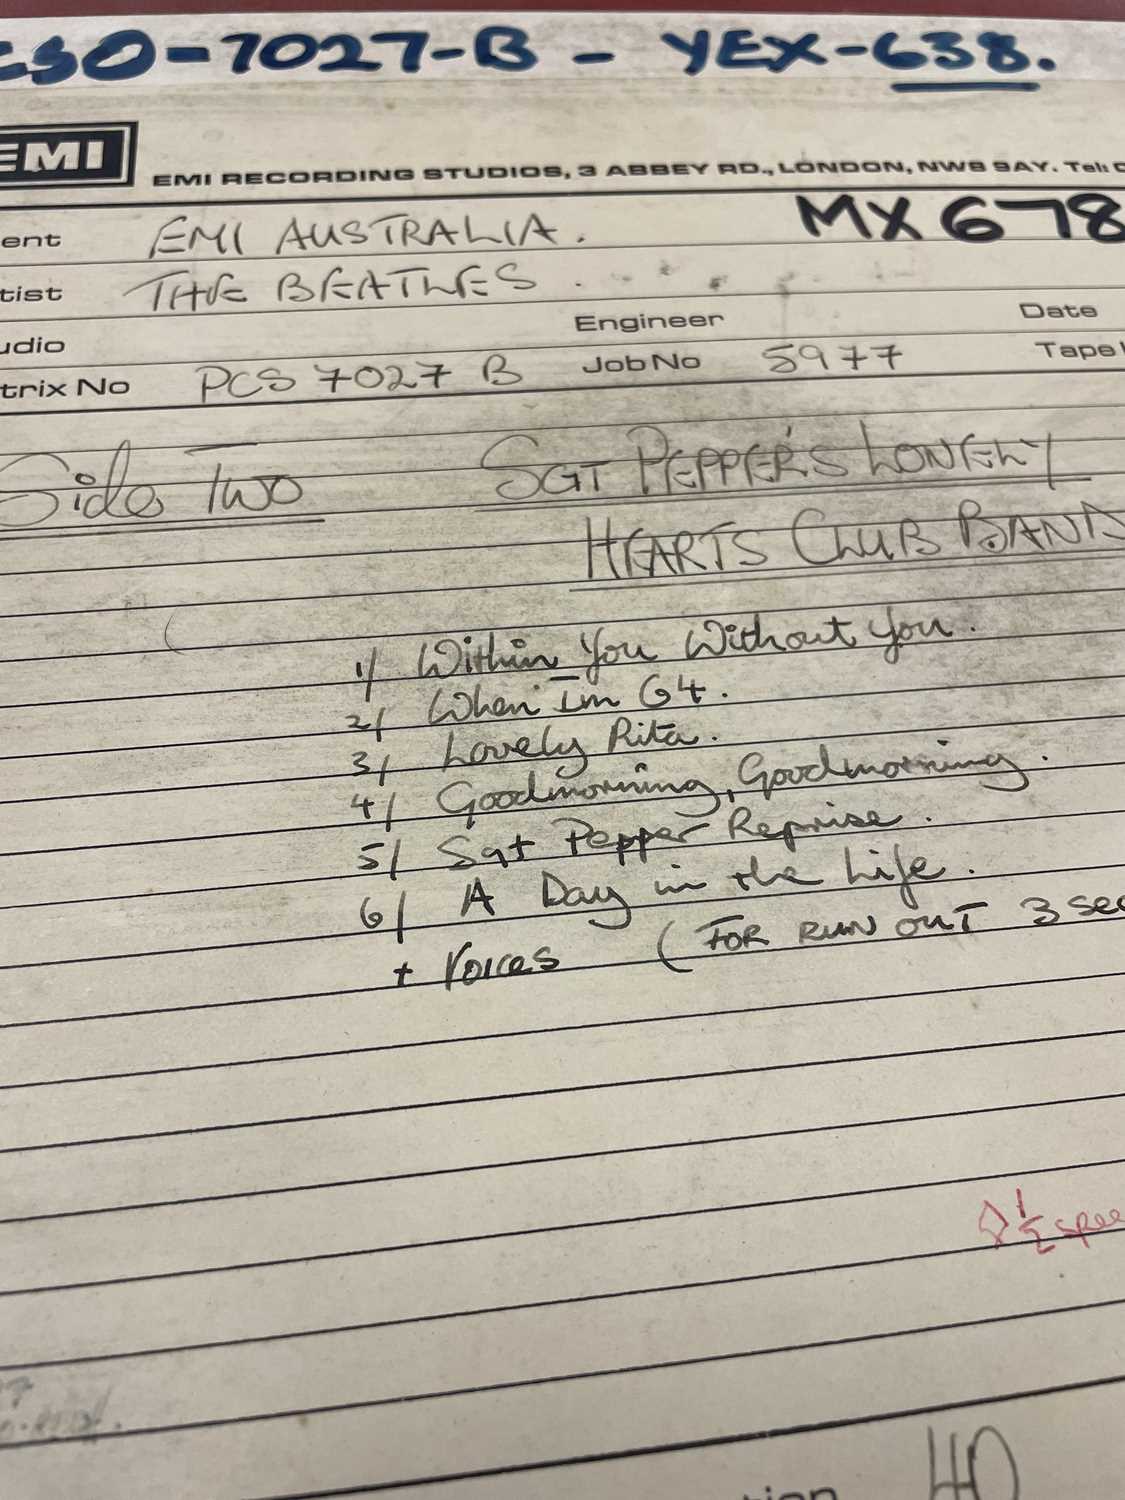 CSO-7027-B - YEX-638.
EMI
EMI RECORDING STUDIOS, 3 ABBEY RD., LONDON, NW8 9AY. Tel:
ent EMI AUSTRALIA. MX 678
tist THE BEATLES.
udio Engineer Date
trix No PCS 7027 B Job No 5977 Tape
Side Two SGT PEPPER'S LONELY
HEARTS CLUB BAND
1/ Within You Without You.
2/ When I'm 64.
3/ Lovely Rita.
4/ Goodmorning, Goodmorning.
5/ Sgt Pepper Reprise.
6/ A Day in the Life.
+ Voices (FOR RUN OUT 3 sec
1/2 spee
40
tion